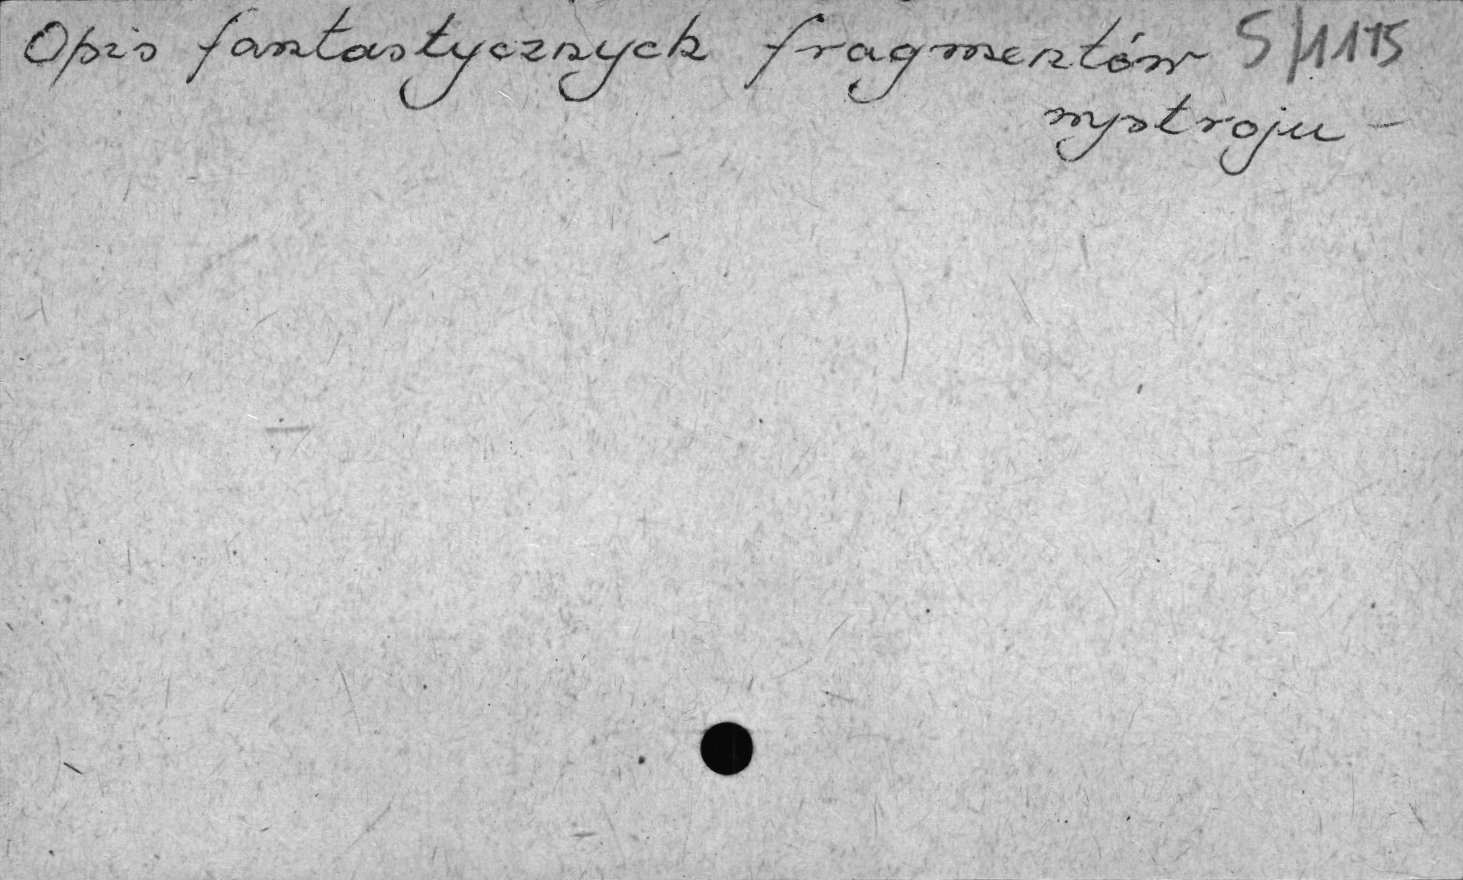 Opis fantastycznych fragmentów S/1115
wystroju -